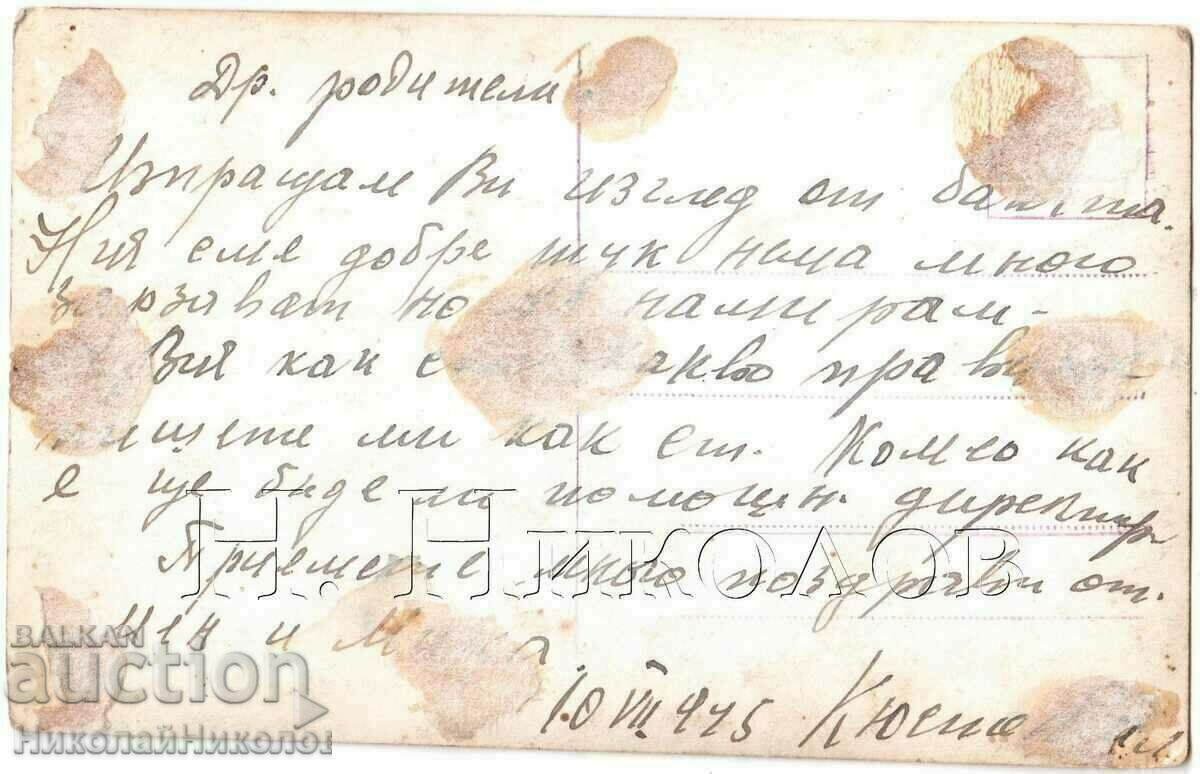 Др. родители
Изпращам Ви изглед от банята.
Ния сме добре тук нема много
но намирам-
Вия как прави
пишете ми как ст. Комчо как
е ще бъде ли помощн. директор
Приемете много поздрави от
мен и
10 VIII 945
Н. Николов
BALKAN
auction
НиколайНиколов